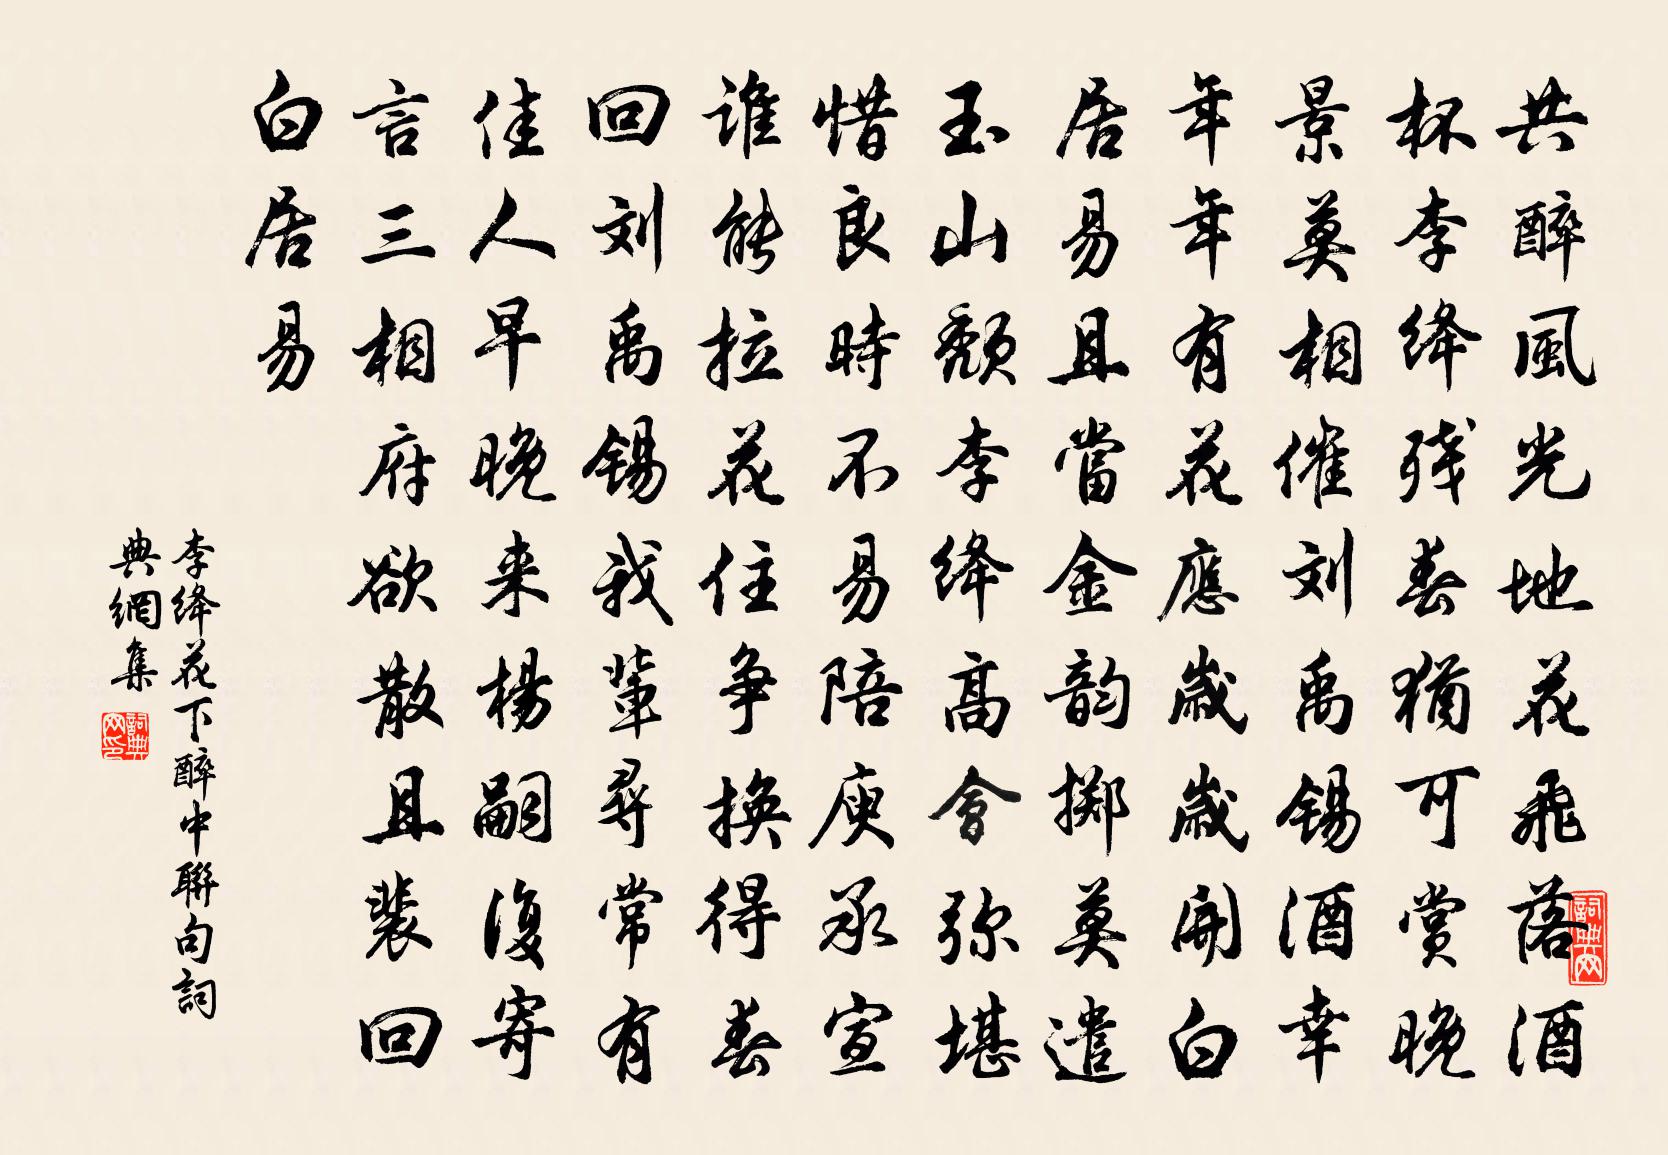 共醉風光地花飛落酒
杯李绛残春猶可賞晚
景莫相催刘禹锡酒幸
年年有花應歲歲開白
居易且當金韵掷莫遣
玉山頹李绛高會弥堪
惜良時不易陪庾承宣
谁能拉花住争換得春
回刘禹锡我輩尋常有
佳人早晚来楊嗣復寄
言三相府欲散且裴回
白居易
李绛花下醉中聯句詞
典網集
詞典网
詞典网印